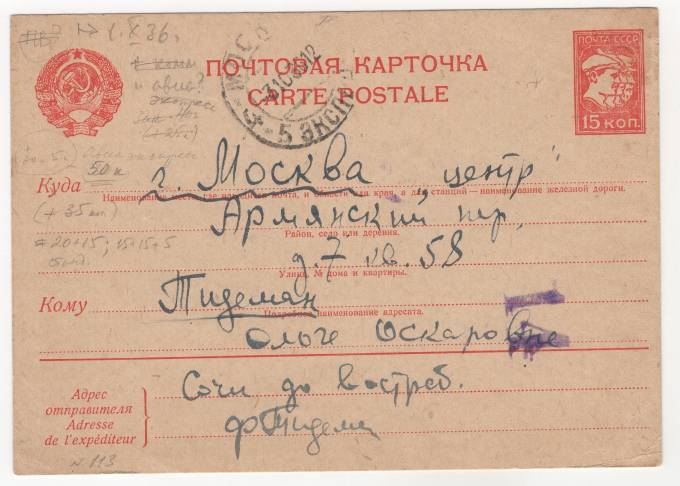 1.X 36.
ПОЧТОВАЯ КАРТОЧКА
CARTE POSTALE
ПОЧТА СССР
15 КОП.
5 ЭКСП
50 к
Куда
г. Москва, центр
Наименование места, где находится почта, и области или края, а для станций — наименование железной дороги.
(+ 35 коп.)
Армянский пер,
Район, село или деревня.
= 20+15; 15+15+5
д. 7 кв. 58
Улица, № дома и квартиры.
Кому
Тидеман
Подробное наименование адресата.
Ольге Оскаровне
Адрес отправителя
Adresse de l'expéditeur
Сочи, до востреб.
Ф Тидеман
N 113